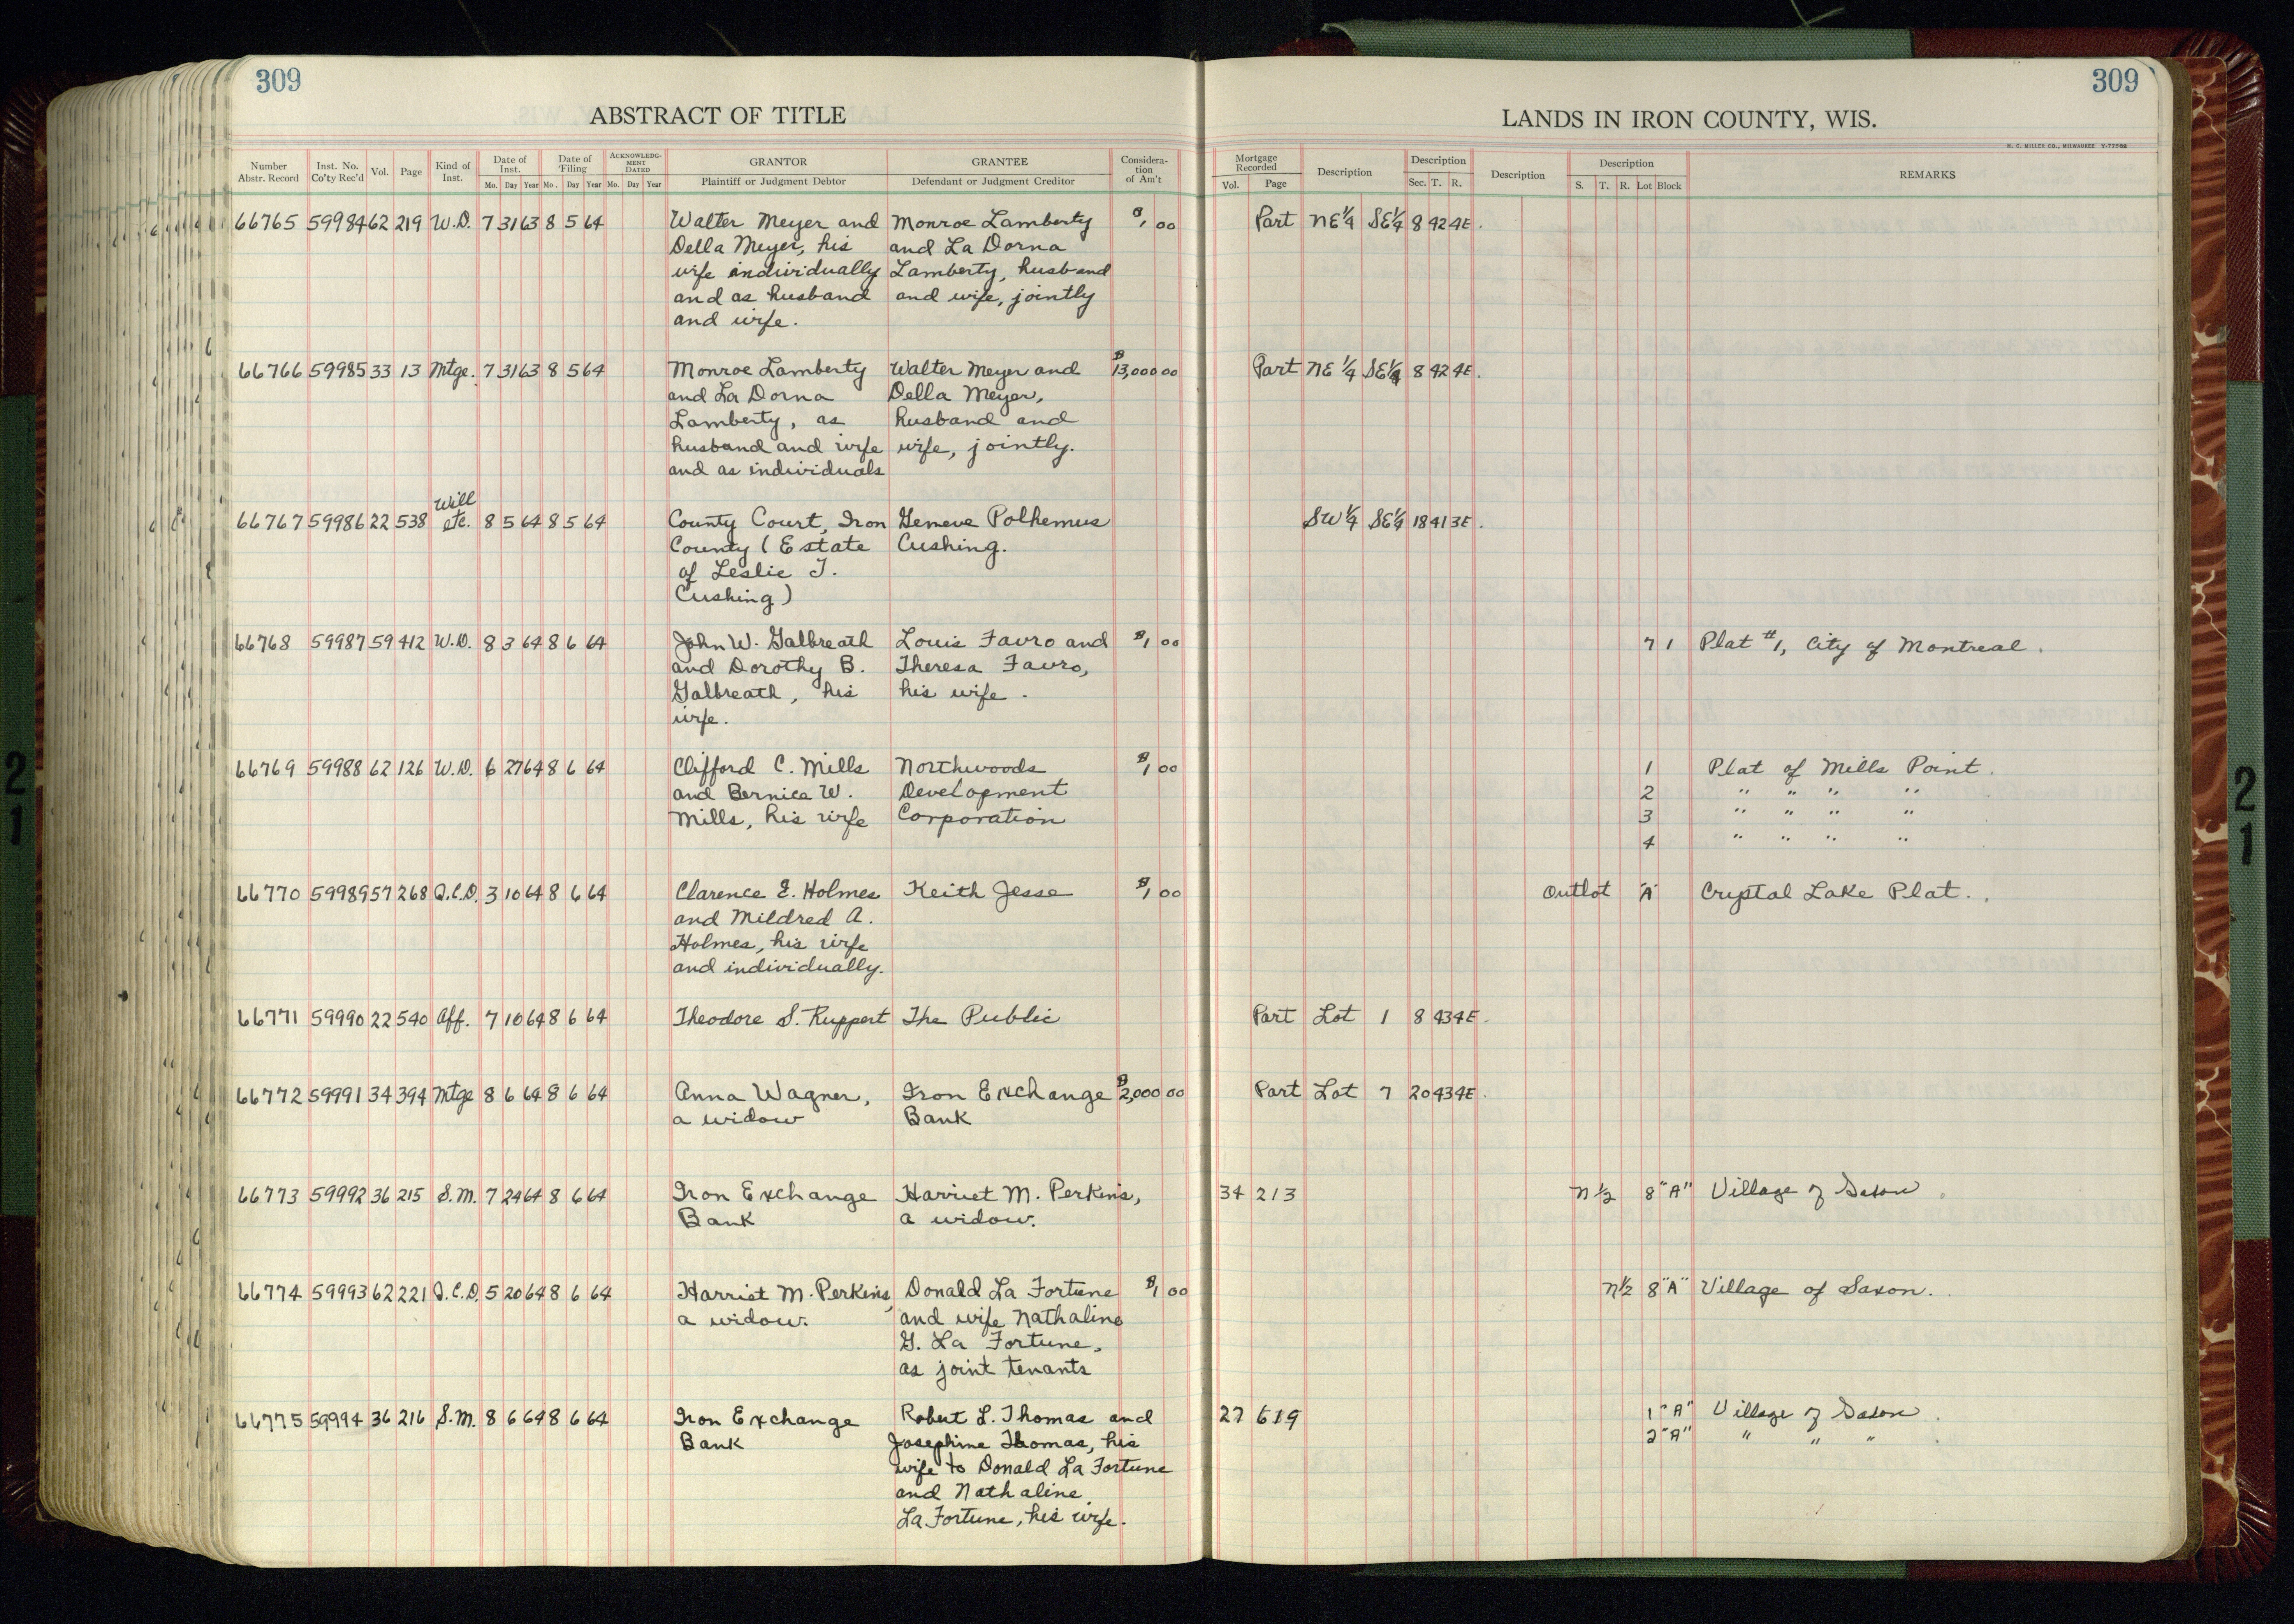 309
309
ABSTRACT OF TITLE
LANDS IN IRON COUNTY, WIS.
H. C. MILLER CO., MILWAUKEE
Number Abstr. Record Inst. No. Co'ty Rec'd Vol. Page Kind of Inst. Date of Inst. Mo. Day Year Date of Filing Mo. Day Year ACKNOWLEDG- MENT DATED Mo. Day Year GRANTOR Plaintiff or Judgment Debtor GRANTEE Defendant or Judgment Creditor Considera- tion of Am't Mortgage Recorded Vol. Page Description Description Sec. T. R. Description Description S. T. R. Lot Block REMARKS
66765 59984 62 219 W.D. 7 31 63 8 5 64 Walter Meyer and Monroe Lamberty $1,00 Part NE 1/4 SE 1/4 8 42 4E.
Della Meyer, his and La Dorna
wife individually Lamberty, husband
and as husband and wife, jointly
and wife.
66766 59985 33 13 Mtge. 7 31 63 8 5 64 Monroe Lamberty Walter Meyer and $13,000 00 Part NE 1/4 SE 1/4 8 42 4E.
and La Dorna Della Meyer,
Lamberty, as husband and
husband and wife wife, jointly.
and as individuals
Will
66767 59986 22 538 etc. 8 5 64 8 5 64 County Court, Iron Geneve Polhemus SW 1/4 SE 1/4 18 41 3E.
County (Estate Cushing.
of Leslie J.
Cushing)
66768 59987 59 412 W.D. 8 3 64 8 6 64 John W. Galbreath Louis Favro and $1 00 7 1 Plat #1, City of Montreal.
and Dorothy B. Theresa Favro,
Galbreath, his his wife.
wife.
66769 59988 62 126 W.D. 6 27 64 8 6 64 Clifford C. Mills Northwoods $1 00 1 Plat of Mills Point.
and Bernice W. Development 2 " " " "
Mills, his wife Corporation 3 " " " "
4 " " " "
66770 59989 57 268 Q.C.D. 3 10 64 8 6 64 Clarence E. Holmes Keith Jesse $1,00 Outlot "A" Crystal Lake Plat.
and Mildred A.
Holmes, his wife
and individually.
66771 59990 22 540 Aff. 7 10 64 8 6 64 Theodore S. Ruppert The Public Part Lot 1 8 43 4E.
66772 59991 34 394 Mtge 8 6 64 8 6 64 Anna Wagner, Iron Exchange $2,000 00 Part Lot 7 20 43 4E.
a widow Bank
66773 59992 36 215 S.M. 7 24 64 8 6 64 Iron Exchange Harriet M. Perkins, 34 213 N 1/2 8 "A" Village of Saxon
Bank a widow.
66774 59993 62 221 Q.C.D. 5 20 64 8 6 64 Harriet M. Perkins, Donald La Fortune $1 00 N 1/2 8 "A" Village of Saxon.
a widow. and wife Nathaline
G. La Fortune,
as joint tenants
66775 59994 36 216 S.M. 8 6 64 8 6 64 Iron Exchange Robert L. Thomas and 27 619 1 "A" Village of Saxon.
Bank Josephine Thomas, his 2 "A" " " "
wife to Donald La Fortune
and Nathaline
La Fortune, his wife.
21
21